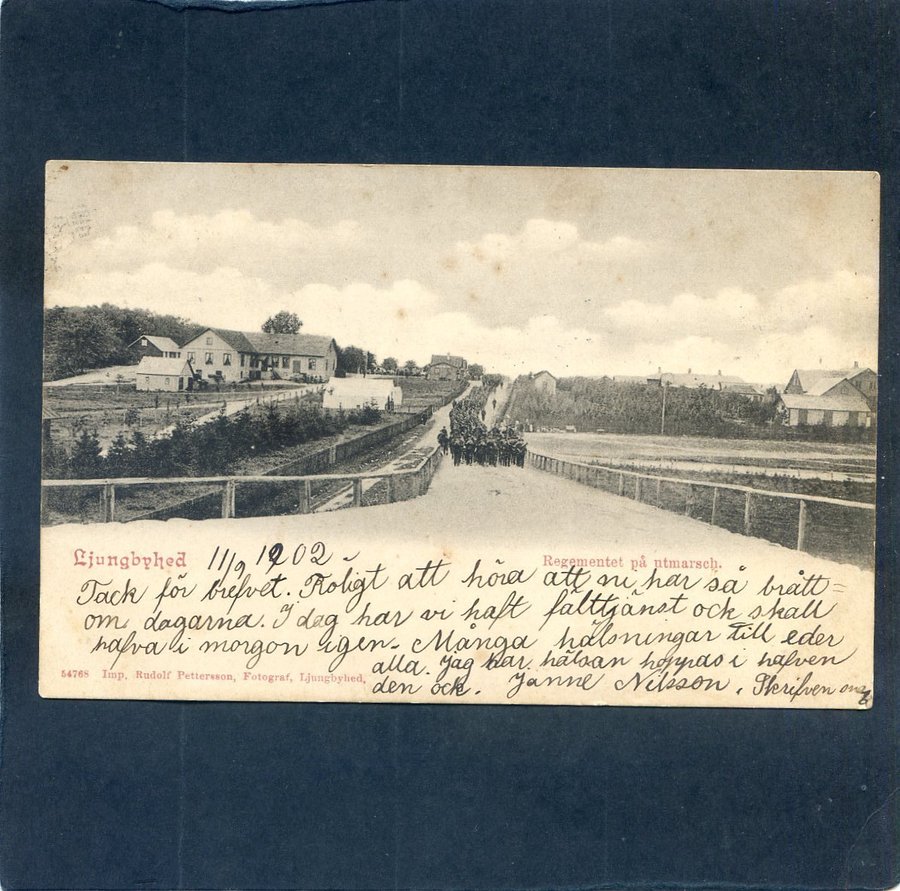 Ljungbyhed 11/9 1902 Regementet på utmarsch.
Tack för brefvet. Roligt att höra att ni har så brått=
om dagarna. I dag har vi haft fälttjänst ock skall
hafva i morgon igen. Många hälsningar till eder
alla. Jag har hälsan hoppas i hafven
54768 Imp. Rudolf Pettersson, Fotograf, Ljungbyhed,
den ock. Janne Nilsson. Skrifven